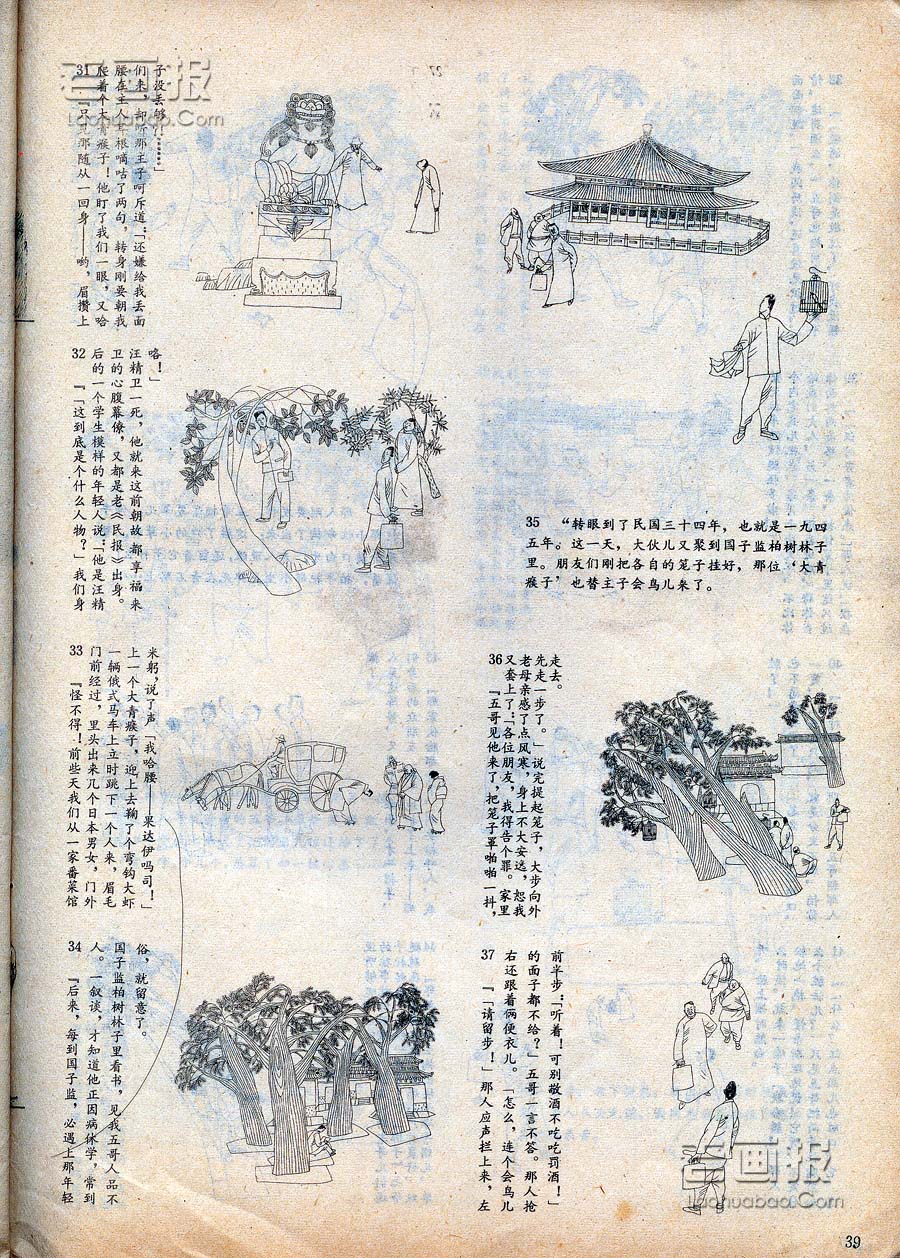 老画报
Laohuabao.Com
31 『只见那随从一回身——哟，眉攒上
爬着个大青瘊子！他盯了我们一眼，又哈
腰在主人耳根嘀咕了两句，转身刚要朝我
们来，却听那王子呵斥道：「还嫌给我丢面
子没丢够?!……」
32 『「这到底是个什么人物？」我们身
后的一个学生模样的年轻人说：「他是汪精
卫的心腹幕僚，又都是老《民报》出身。
汪精卫一死，他就来这前朝故都享福来
咯！」
33 『怪不得！前些天我们从一家番菜馆
门前经过，里头出来几个日本男女，门外
一辆俄式马车上立时跳下一个人来，眉毛
上一个大青瘊子，迎上去鞠了个弯钩大虾
米躬，说了声「我哈腰——果达伊吗司！」
34 『后来，每到国子监，必遇上那年轻
人。一叙谈，才知道他正因病休学，常到
国子监柏树林子里看书，见我五哥人品不
俗，就留意了。
35 “转眼到了民国三十四年，也就是一九四
五年。这一天，大伙儿又聚到国子监柏树林子
里。朋友们刚把各自的笼子挂好，那位‘大青
瘊子’也替主子会鸟儿来了。
36 『五哥见他来了，把笼子罩啪啪一抖，
又套上了：「各位朋友，我得告个罪。家里
老母亲感了点风寒，身上不大安适，恕我
先走一步了。」说完提起笼子，大步向外
走去。
37 『「请留步！」那人应声拦上来，左
右还跟着俩便衣儿。「怎么，连个会鸟儿
的面子都不给？」五哥一言不答。那人抢
前半步：「听着！可别敬酒不吃吃罚酒！」
老画报
Laohuabao.Com
39